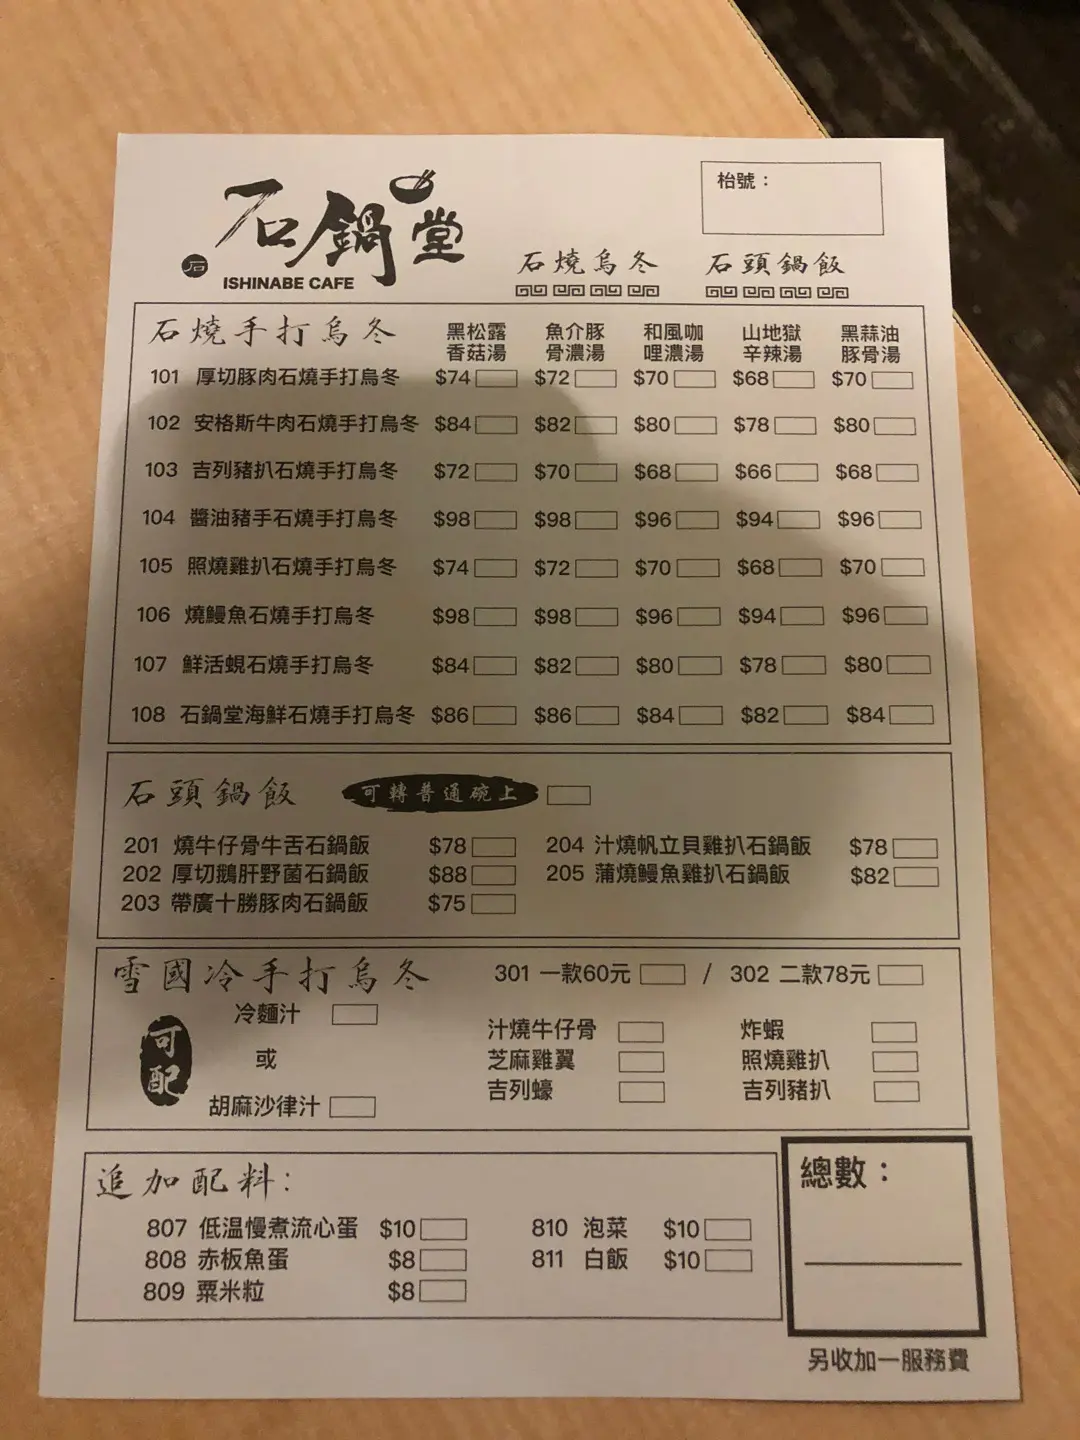 枱號：
石鍋堂
石
ISHINABE CAFE
石燒烏冬 石頭鍋飯
石燒手打烏冬 黑松露香菇湯 魚介豚骨濃湯 和風咖哩濃湯 山地獄辛辣湯 黑蒜油豚骨湯
101 厚切豚肉石燒手打烏冬 $74 $72 $70 $68 $70
102 安格斯牛肉石燒手打烏冬 $84 $82 $80 $78 $80
103 吉列豬扒石燒手打烏冬 $72 $70 $68 $66 $68
104 醬油豬手石燒手打烏冬 $98 $98 $96 $94 $96
105 照燒雞扒石燒手打烏冬 $74 $72 $70 $68 $70
106 燒鰻魚石燒手打烏冬 $98 $98 $96 $94 $96
107 鮮活蜆石燒手打烏冬 $84 $82 $80 $78 $80
108 石鍋堂海鮮石燒手打烏冬 $86 $86 $84 $82 $84
石頭鍋飯 可轉普通碗上
201 燒牛仔骨牛舌石鍋飯 $78 204 汁燒帆立貝雞扒石鍋飯 $78
202 厚切鵝肝野菌石鍋飯 $88 205 蒲燒鰻魚雞扒石鍋飯 $82
203 帶廣十勝豚肉石鍋飯 $75
雪國冷手打烏冬 301 一款60元 / 302 二款78元
可配
冷麵汁
或
胡麻沙律汁
汁燒牛仔骨 炸蝦
芝麻雞翼 照燒雞扒
吉列蠔 吉列豬扒
追加配料:
807 低温慢煮流心蛋 $10 810 泡菜 $10
808 赤板魚蛋 $8 811 白飯 $10
809 粟米粒 $8
總數：
另收加一服務費